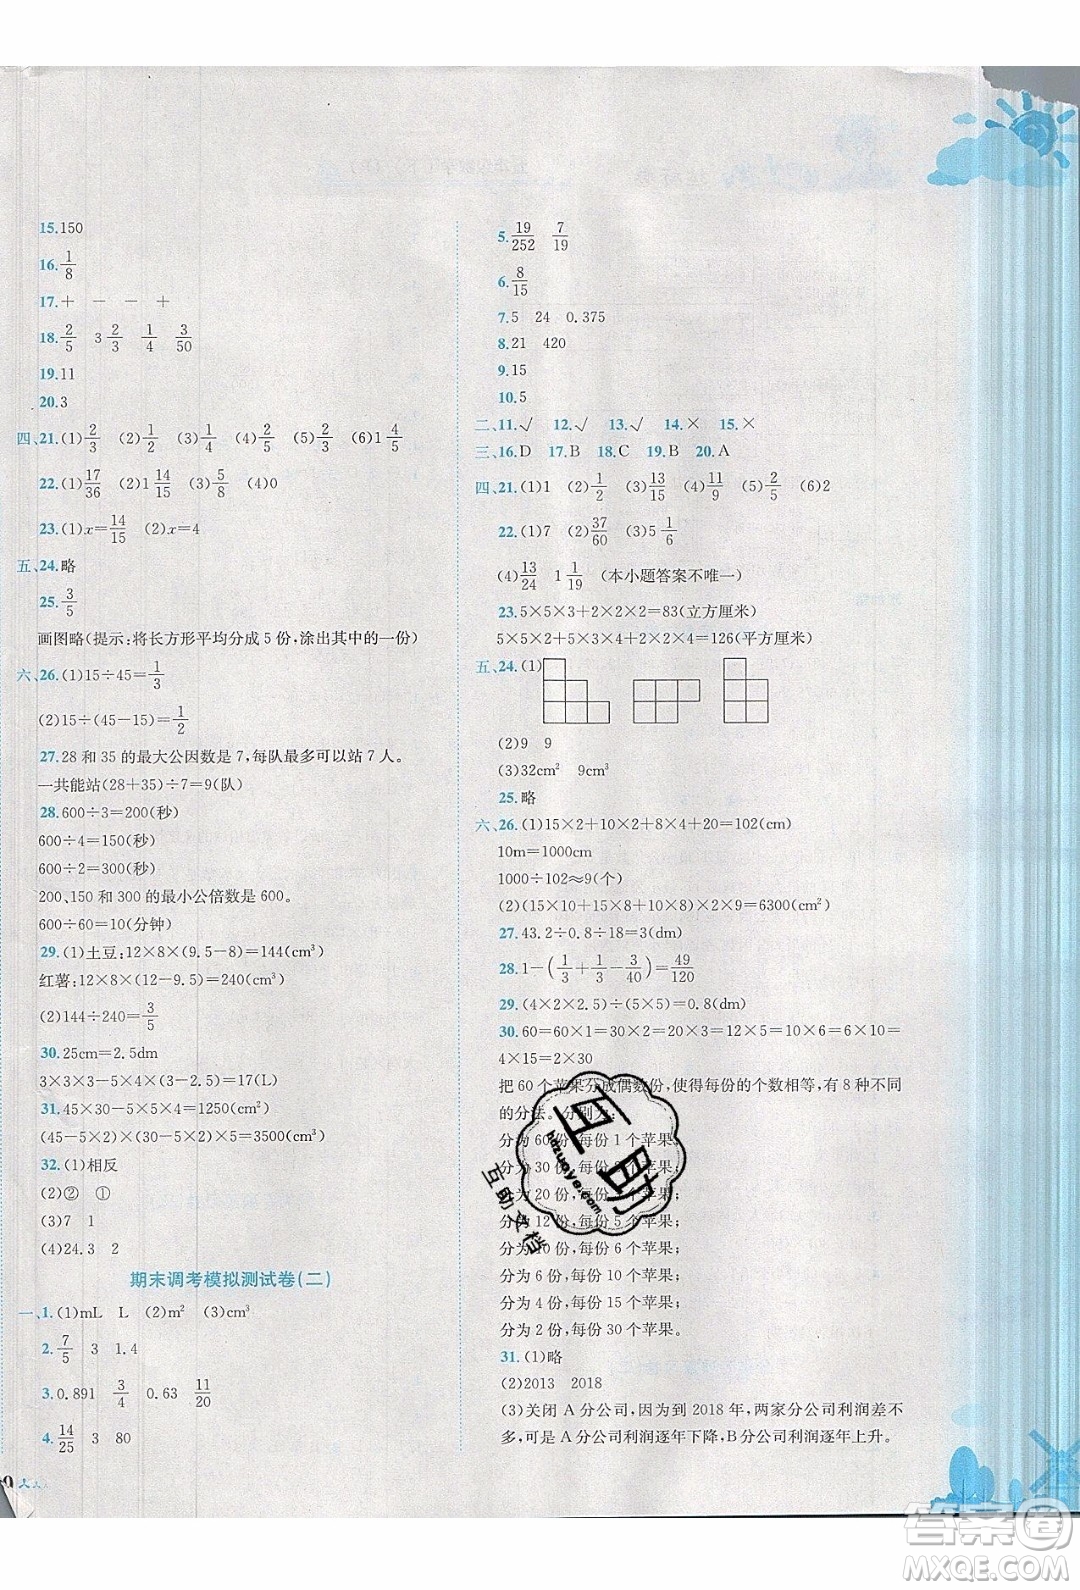 15.150
16. 1/8
17.＋ － － ＋
18. 2/5 3 2/3 1/4 3/50
19.11
20.3
四、21.(1) 2/3 (2) 1/2 (3) 1/4 (4) 2/5 (5) 2/3 (6)1 4/5
22.(1) 17/36 (2)1 14/15 (3) 5/8 (4)0
23.(1)x= 14/15 (2)x=4
五、24.略
25. 3/5
画图略(提示:将长方形平均分成 5 份,涂出其中的一份)
六、26.(1)15÷45= 1/3
(2)15÷(45−15)= 1/2
27.28 和 35 的最大公因数是 7,每队最多可以站 7 人。
一共能站(28+35)÷7=9(队)
28.600÷3=200(秒)
600÷4=150(秒)
600÷2=300(秒)
200、150 和 300 的最小公倍数是 600。
600÷60=10(分钟)
29.(1)土豆:12×8×(9.5−8)=144(cm³)
红薯:12×8×(11−9.5)=144(cm³)
(2)144÷240= 3/5
30.25cm=2.5dm
3×3×3−4×1×2.5=17(L)
31.45×30−5×5×4=1250(cm²)
(45−5×2)×(30−5×2)×5=3500(cm³)
32.(1)相反
(2)② ①
(3)7 1
(4)24.3 2
期末调考模拟测试卷(二)
一、1.(1)mL L (2)m² (3)cm³
2. 7/5 3 1.4
3.0.891 3/4 0.63 11/20
4. 14/25 3 80
5. 19/252 7/19
6. 8/15
7.5 24 0.375
8.21 420
9.15
10.5
二、11.√ 12.√ 13.√ 14.× 15.×
三、16.D 17.B 18.C 19.B 20.A
四、21.(1)1 (2) 1/2 (3) 13/15 (4) 11/9 (5) 2/5 (6)2
22.(1)7 (2) 37/60 (3)5 1/6
(4) 13/24 1 1/19 (本小题答案不唯一)
23.5×5×3+2×2×2=83(立方厘米)
5×5×2+5×3×4+2×2×4=126(平方厘米)
五、24.(1)
(2)9 9
(3)32cm² 9cm³
25.略
六、26.(1)15×2+10×2+8×4+20=102(cm)
10m=1000cm
1000÷102≈9(个)
(2)(15×10+15×8+10×8)×2×9=6300(cm²)
27.43.2÷0.8÷18=3(m)
28.1−( 1/3 + 1/3 − 3/40 )= 49/120
29.(4×2×2.5)÷(5×5×0.5)=0.8(dm)
30.60=60×1=30×2=20×3=12×5=10×6=
4×15=2×30
把 60 个苹果分成偶数份,使得每份的个数相等,有 8 种不同
的分法。分别为:
分为 60 份,每份 1 个苹果;
分为 30 份,每份 2 个苹果;
分为 20 份,每份 3 个苹果;
分为 12 份,每份 5 个苹果;
分为 10 份,每份 6 个苹果;
分为 6 份,每份 10 个苹果;
分为 4 份,每份 15 个苹果;
分为 2 份,每份 30 个苹果。
31.(1)略
(2)2013 2018
(3)关闭 A 分公司,因为到 2018 年,两家分公司利润差不
多,可是 A 分公司利润逐年下降,B 分公司利润逐年上升。
互助
hdzuoye.com
互助文档
答案圈
MXQE.COM